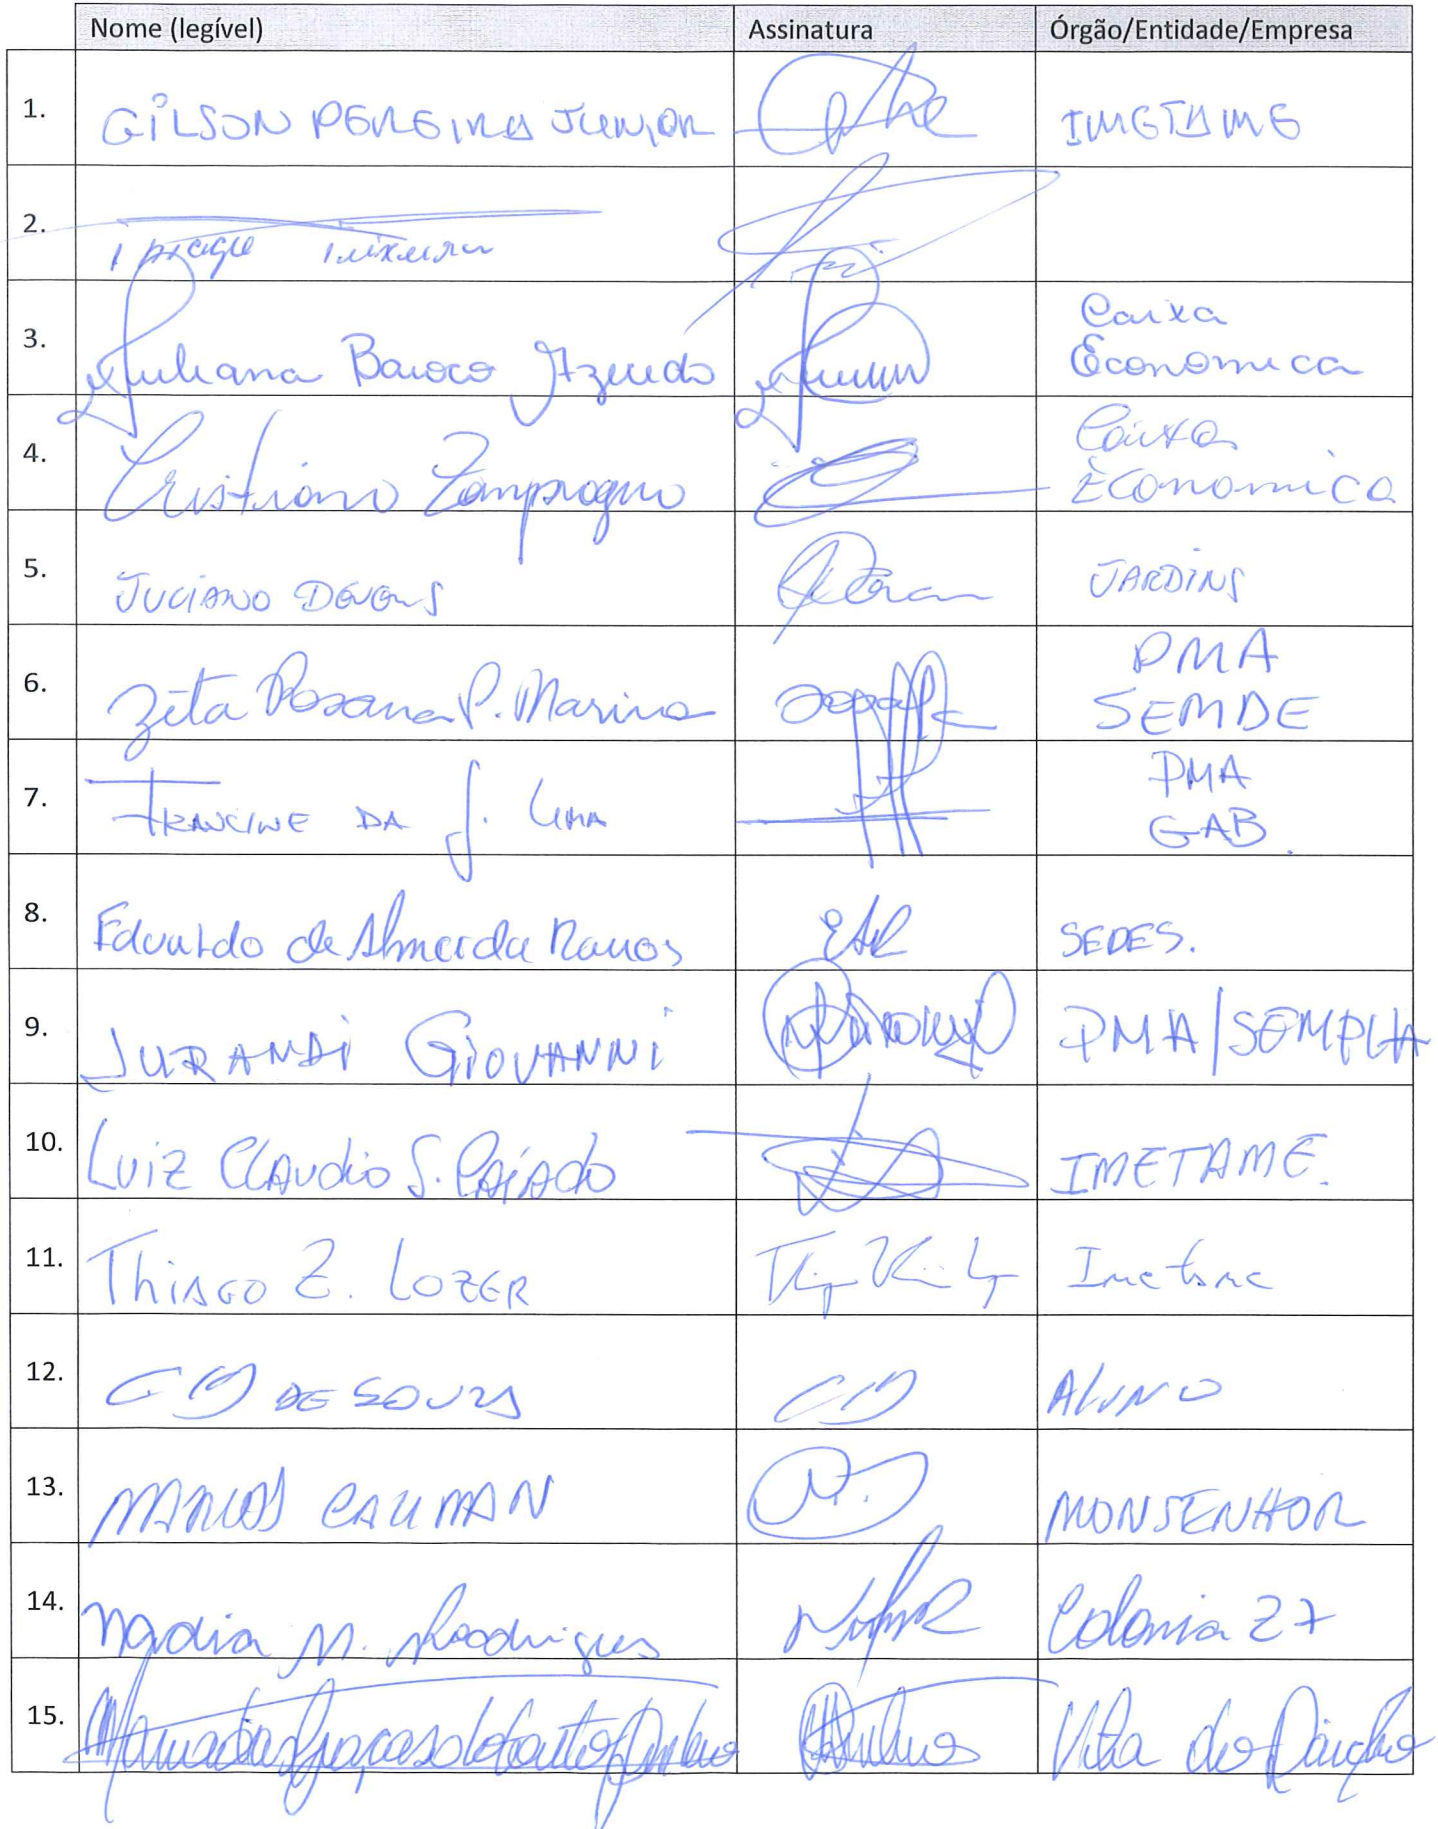 Nome (legível) Assinatura Órgão/Entidade/Empresa
1. GILSON PEREIRA JUNIOR IMETAME
2. Teixeira
3. Juliana Baioco Azeredo Caixa
Economica
4. Cristiano Zamprogno Caixa
Economica
5. JUCIANO JARDINS
6. Zeta Rosana P. Marino PMA
SEMDE
7. FRANCINE DA S. LIMA PMA
GAB.
8. Eduardo de Almeida Ramos SEDES.
9. JURANDI GIOVANNI PMA/SEMPLA
10. LUIZ CLAUDIO S. CAIADO IMETAME.
11. THIAGO Z. LOZER Imetame
12. CID DE SOUZA CID ALUNO
13. MARCOS CALIMAN MONSENHOR
14. Nadia M. Rodrigues Colonia Z7
15. Maria das Graças Vila do Riacho